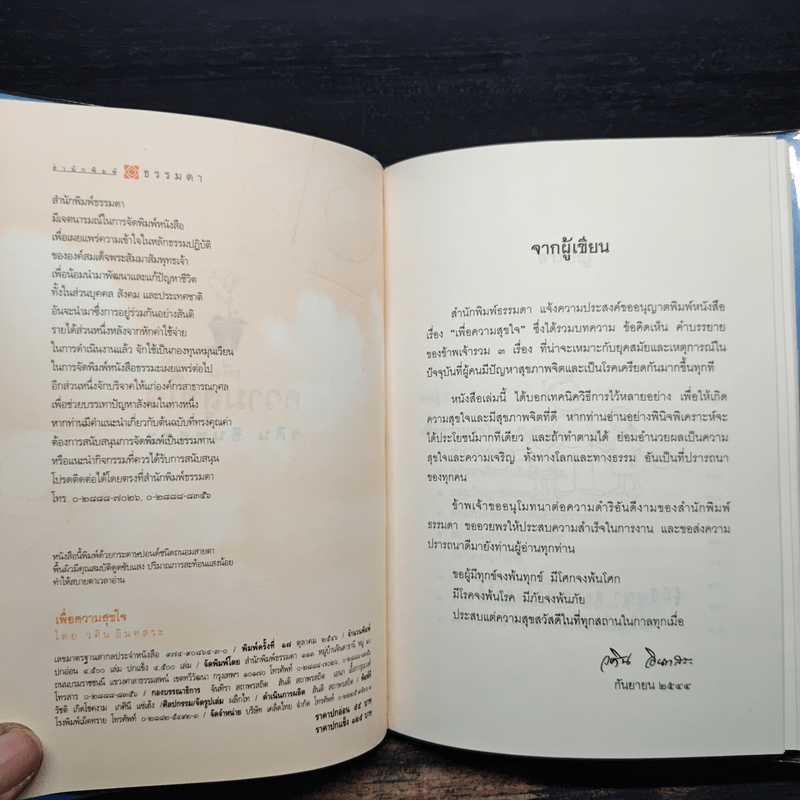 สำนักพิมพ์ ธรรมดา
สำนักพิมพ์ธรรมดา
มีเจตนารมณ์ในการจัดพิมพ์หนังสือ
เพื่อเผยแพร่ความเข้าใจในหลักธรรมปฏิบัติ
ขององค์สมเด็จพระสัมมาสัมพุทธเจ้า
เพื่อน้อมนำมาพัฒนาและแก้ปัญหาชีวิต
ทั้งในส่วนบุคคล สังคม และประเทศชาติ
อันจะนำมาซึ่งการอยู่ร่วมกันอย่างสันติ
รายได้ส่วนหนึ่งหลังจากหักค่าใช้จ่าย
ในการดำเนินงานแล้ว จักใช้เป็นกองทุนหมุนเวียน
ในการจัดพิมพ์หนังสือธรรมะเผยแพร่ต่อไป
อีกส่วนหนึ่งจักบริจาคให้แก่องค์กรสาธารณกุศล
เพื่อช่วยบรรเทาปัญหาสังคมในทางหนึ่ง
หากท่านมีคำแนะนำเกี่ยวกับต้นฉบับที่ทรงคุณค่า
ต้องการสนับสนุนการจัดพิมพ์เป็นธรรมทาน
หรือแนะนำกิจกรรมที่ควรได้รับการสนับสนุน
โปรดติดต่อได้โดยตรงที่สำนักพิมพ์ธรรมดา
โทร. ๐-๒๘๘๘-๗๐๒๖, ๐-๒๘๘๘-๘๓๕๖
หนังสือนี้พิมพ์ด้วยกระดาษปอนด์ชนิดถนอมสายตา
พื้นผิวมีคุณสมบัติดูดซับแสง ปริมาณการสะท้อนแสงน้อย
ทำให้สบายตาเวลาอ่าน
เพื่อความสุขใจ
โดย วศิน อินทสระ
เลขมาตรฐานสากลประจำหนังสือ ๙๗๔-๙๐๘๖๔-๓-๐ / พิมพ์ครั้งที่ ๑๗ ตุลาคม ๒๕๔๖ / จำนวนพิมพ์
ปกอ่อน ๔,๕๐๐ เล่ม ปกแข็ง ๑,๕๐๐ เล่ม / จัดพิมพ์โดย สำนักพิมพ์ธรรมดา ๑๑๓ หมู่บ้าน
ถนนบรมราชชนนี แขวงศาลาธรรมสพน์ เขตทวีวัฒนา กรุงเทพฯ ๑๐๑๗๐ โทรศัพท์ ๐-๒๘๘๘-๗๐๒๖,
โทรสาร ๐-๒๘๘๘-๘๓๕๖ / กองบรรณาธิการ จันทิรา สถาพรสถิต สันติ สถาพรสถิต
วัชดี เกิดโชคงาม เกศินี แซ่เฮ้ง /ศิลปกรรม/จัดรูปเล่ม ผลึกไท / ดำเนินการผลิต สันติ สถาพรสถิต / พิมพ์ที่
โรงพิมพ์เม็ดทราย โทรศัพท์ ๐-๒๘๘๒-๕๔๙๒-๓ / จัดจำหน่าย บริษัท เคล็ดไทย จำกัด โทรศัพท์
ราคาปกอ่อน ๕๕ บาท
ราคาปกแข็ง ๑๒๕ บาท
จากผู้เขียน
สำนักพิมพ์ธรรมดา แจ้งความประสงค์ขออนุญาตพิมพ์หนังสือ
เรื่อง “เพื่อความสุขใจ” ซึ่งได้รวมบทความ ข้อคิดเห็น คำบรรยาย
ของข้าพเจ้ารวม ๓ เรื่อง ที่น่าจะเหมาะกับยุคสมัยและเหตุการณ์ใน
ปัจจุบันที่ผู้คนมีปัญหาสุขภาพจิตและเป็นโรคเครียดกันมากขึ้นทุกที
หนังสือเล่มนี้ ได้บอกเทคนิควิธีการไว้หลายอย่าง เพื่อให้เกิด
ความสุขใจและมีสุขภาพจิตที่ดี หากท่านอ่านอย่างพินิจพิเคราะห์จะ
ได้ประโยชน์มากทีเดียว และถ้าทำตามได้ ย่อมอำนวยผลเป็นความ
สุขใจและความเจริญ ทั้งทางโลกและทางธรรม อันเป็นที่ปรารถนา
ของทุกคน
ข้าพเจ้าขออนุโมทนาต่อความดำริอันดีงามของสำนักพิมพ์
ธรรมดา ขออวยพรให้ประสบความสำเร็จในการงาน และขอส่งความ
ปรารถนาดีมายังท่านผู้อ่านทุกท่าน
ขอผู้มีทุกข์จงพ้นทุกข์ มีโศกจงพ้นโศก
มีโรคจงพ้นโรค มีภัยจงพ้นภัย
ประสบแต่ความสุขสวัสดีในที่ทุกสถานในกาลทุกเมื่อ
วศิน อินทสระ
กันยายน ๒๕๔๔